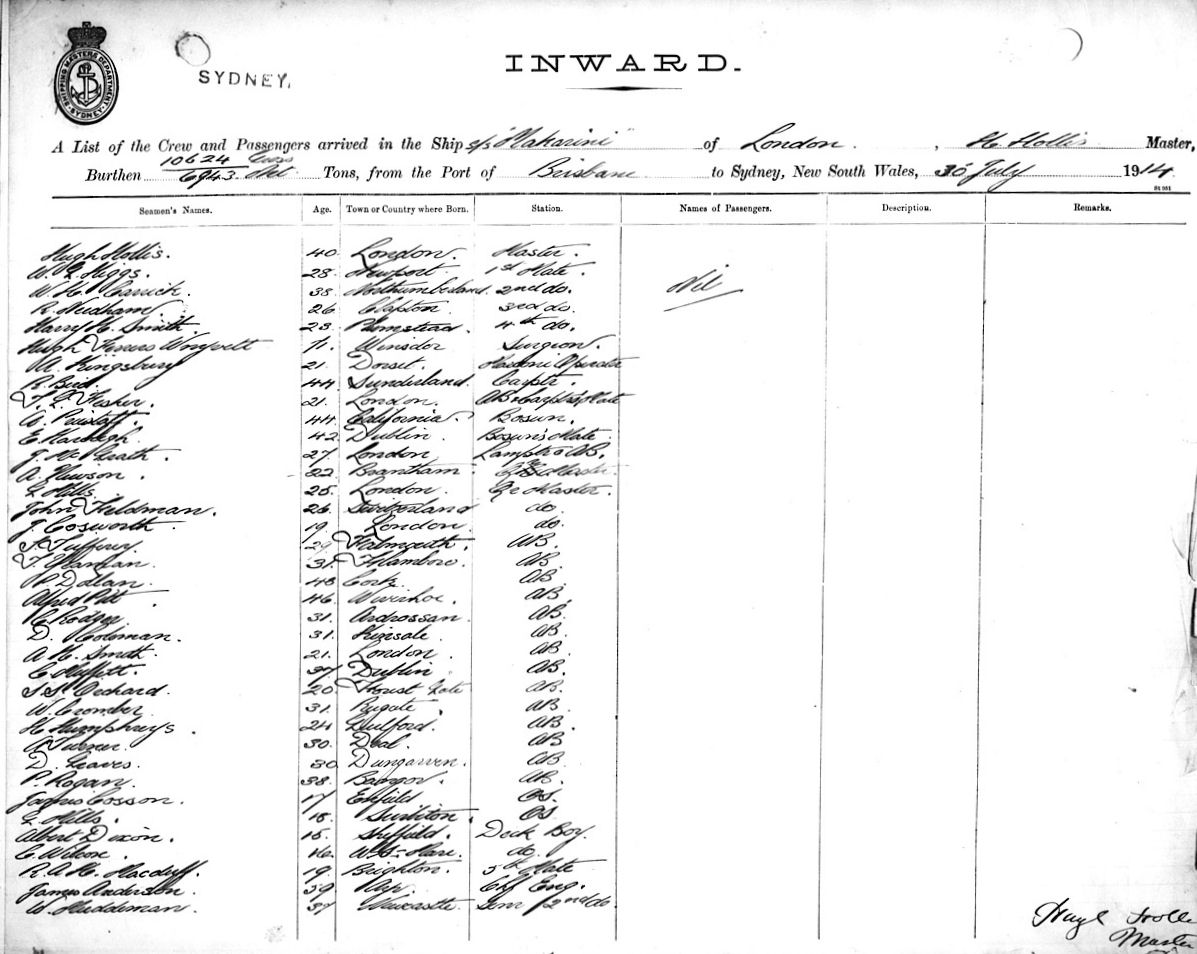 SHIPPING MASTERS DEPARTMENT SYDNEY
SYDNEY.
INWARD.
A List of the Crew and Passengers arrived in the Ship s/s "Makarini" of London, H. Hollis Master,
Burthen 10624 Gross 6943 Net Tons, from the Port of Brisbane to Sydney, New South Wales, 30 July 1914.
St 951
Seamen's Names. Age. Town or Country where Born. Station. Names of Passengers. Description. Remarks.
Hugh Hollis. 40 London. Master.
W. Higgs. 28 Newport. 1st Mate.
W. H. Carrick. 38 Northumberland. 2nd do. Nil
R. Needham. 26 Clapton. 3rd do.
Harry H. Smith. 23 Plumstead. 4th do.
Hugh 71. Winsdor Surgeon.
A. Kingsbury 21 Dorset. Marconi Operator
R. Bird. 44 Sunderland. Carptr.
Fisher. 21. London. AB & Carptr's Mate
44 California. Bosun.
E. Kavanagh. 42 Dublin. Bosun's Mate.
J. McGrath. 27 London Lamps & AB.
A. Newson. 22 Brantham. Qr Master.
G. Hills. 25. London. Qr Master.
John Feldman. 26 Switzerland do.
J. Cosworth. 19 London. do.
29 Falmouth. AB.
31. AB.
P. Dollan. 48 Cork. AB.
Alfred Pitt. 46. Wivenhoe. AB.
R. Rodger 31. Ardrossan. AB.
D. Coleman. 31. Kinsale. AB.
A. H. Smith. 21. London. AB.
C. Moffett. 37 Dublin AB.
Orchard. 20 Forest Gate AB.
W. Cromber 31. Reigate. AB.
H. Humphreys. 24 Guilford. AB.
A. Turner. 30. Deal. AB
D. Leaves. 30 Dungarven. AB.
P. Rogan. 38. Bangor. AB.
James Cosson. 17 Enfield OS.
G. Hills. 18. Surbiton. OS.
Albert Dixon. 16. Sheffield. Deck Boy.
C. Wilcox. 16. W. S. Mare. do.
R. A. H. Macduff. 19 Brighton. 5th Mate
James Anderson. 39 Ayr. Chf Eng.
W. Huddeman. 37 Newcastle. Senr 2nd do.
Hugh Hollis
Master